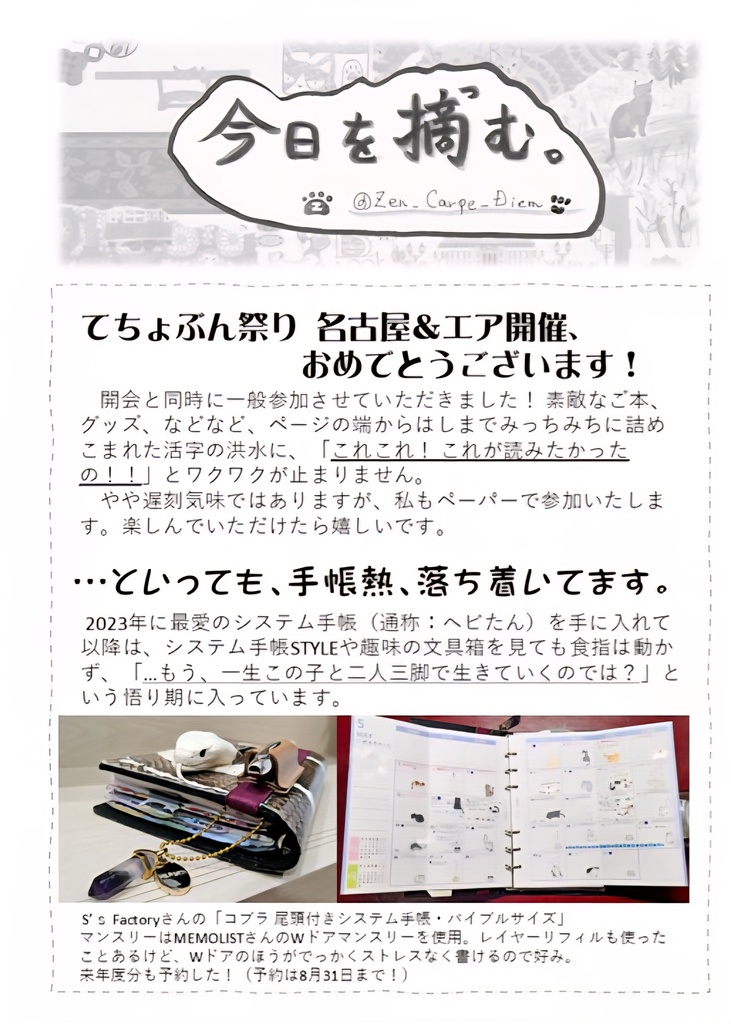 今日を摘む。
@Zen_Carpe_Diem
てちょぶん祭り 名古屋&エア開催、
おめでとうございます！
開会と同時に一般参加させていただきました！ 素敵なご本、
グッズ、などなど、ページの端からはしまでみっちみちに詰め
こまれた活字の洪水に、「これこれ！ これが読みたかった
の！！」とワクワクが止まりません。
やや遅刻気味ではありますが、私もペーパーで参加いたしま
す。楽しんでいただけたら嬉しいです。
…といっても、手帳熱、落ち着いてます。
2023年に最愛のシステム手帳（通称：ヘビたん）を手に入れて
以降は、システム手帳STYLEや趣味の文具箱を見ても食指は動か
ず、「…もう、一生この子と二人三脚で生きていくのでは？」と
いう悟り期に入っています。
S’s Factoryさんの「コブラ 尾頭付きシステム手帳・バイブルサイズ」
マンスリーはMEMOLISTさんのWドアマンスリーを使用。レイヤーリフィルも使った
ことあるけど、Wドアのほうがでっかくストレスなく書けるので好み。
来年度分も予約した！（予約は8月31日まで！）